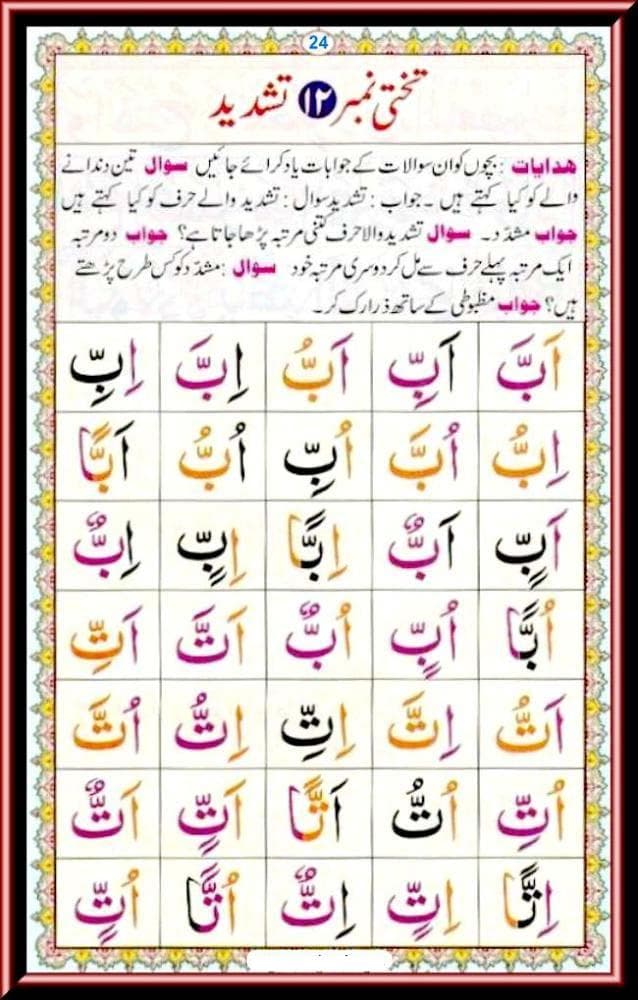 24
تختی نمبر ۱۲ تشدید
ھدایات : بچوں کو ان سوالات کے جوابات یاد کرائے جائیں سوال تین دندانے
والے کو کیا کہتے ہیں ۔ جواب : تشدید سوال : تشدید والے حرف کو کیا کہتے ہیں
جواب مشدّد ۔ سوال تشدید والا حرف کتنی مرتبہ پڑھا جاتا ہے؟ جواب دو مرتبہ
ایک مرتبہ پہلے حرف سے مل کر دوسری مرتبہ خود سوال : مشدّد کو کس طرح پڑھتے
ہیں؟ جواب مظبوطی کے ساتھ ذرا رک کر ۔
اَبَّ اَبِّ اَبُّ اِبَّ اِبِّ
اِبُّ اُبَّ اُبِّ اُبُّ اَبًّا
اَبٍّ اَبٌّ اِبًّا اِبٍّ اِبٌّ
اُبًّا اُبٍّ اُبٌّ اَتَّ اَتِّ
اَتُّ اِتَّ اِتِّ اِتُّ اُتَّ
اُتِّ اُتُّ اَتًّا اَتٍّ اَتٌّ
اِتًّا اِتٍّ اِتٌّ اُتًّا اُتٍّ